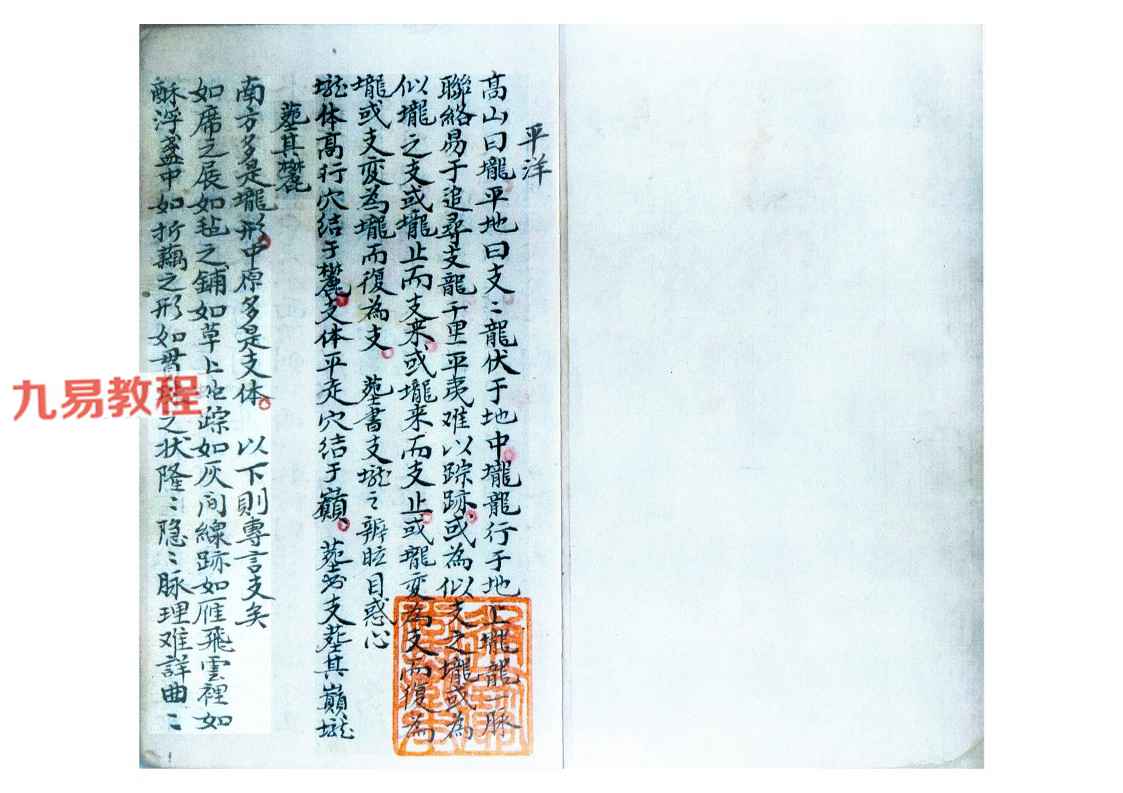 平洋
高山曰壠平地曰支〻龍伏于地中壠龍行于地上壠龍一脉
聯絡易于追尋支龍千里平夷难以踪跡或為似支之壠或為
似壠之支或壠止而支来或壠来而支止或龍变為支而復為
壠或支变為壠而復為支 塟書支壠之辨眩目惑心
壠体髙行穴结于麓支体平走穴结于巔 塟書支塟其巔壠
塟其麓
南方多是壠形中原多是支体 以下則專言支矣
如席之展如毡之鋪如草上蛇踪如灰间線跡如雁飛雲裡如
酥浮盏中如折藕之形如之状隆〻隐〻脉理难詳曲〻
九易教程